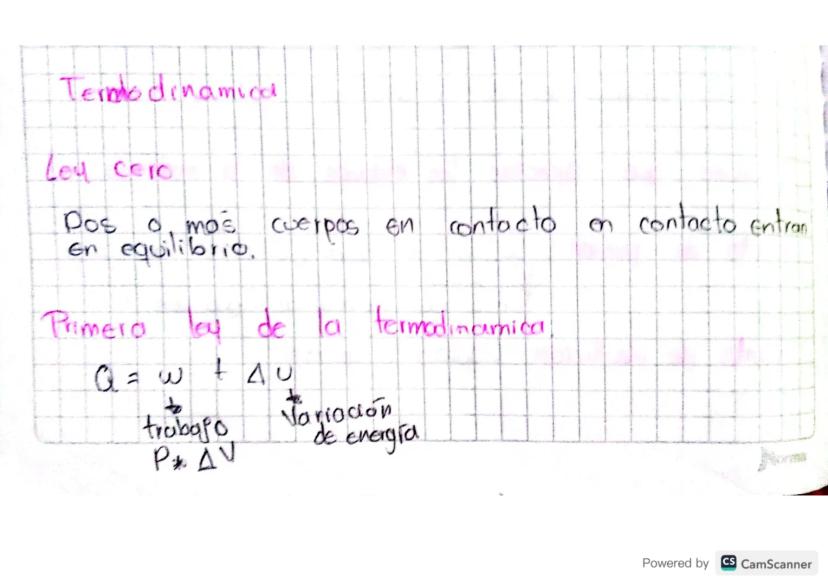 Termodinamica
Ley cero
Dos o más cuerpos en contacto en contacto entran
en equilibrio.
Primera ley de la termodinamica
Q = w + Δ U
trabajo Variación
de energía
P * ΔV
Norma
Powered by CS CamScanner